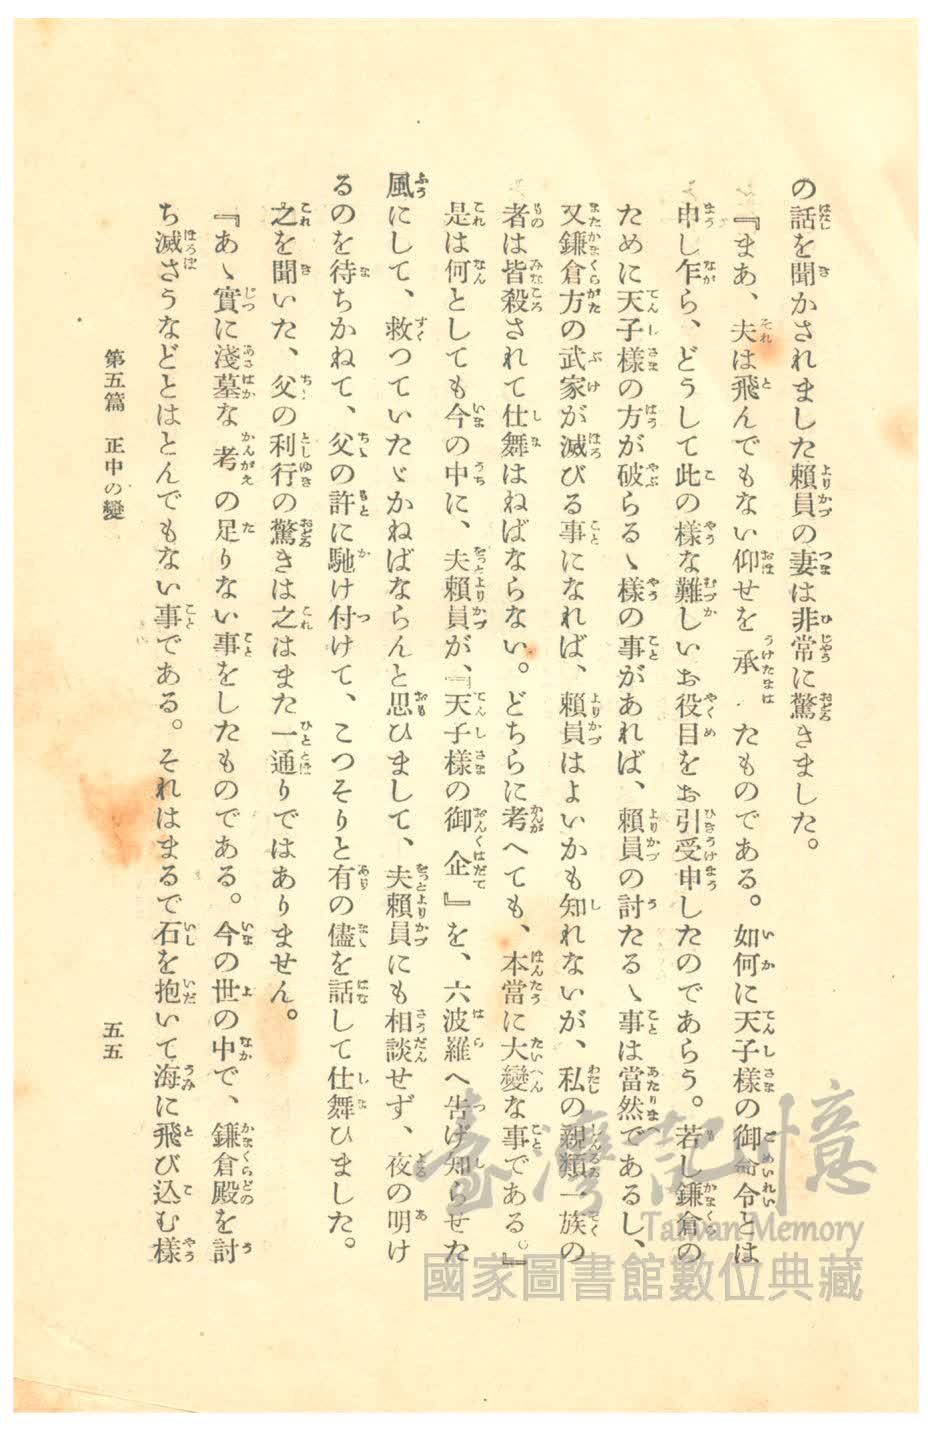 の話を聞かされました賴員の妻は非常に驚きました。
『まあ、夫は飛んでもない仰せを承たものである。如何に天子樣の御命令とは
申し乍ら、どうして此の樣な難しいお役目をお引受申したのであらう。若し鎌倉の
ために天子樣の方が破らるゝ樣の事があれば、賴員の討たるゝ事は當然であるし、
又鎌倉方の武家が滅びる事になれば、賴員はよいかも知れないが、私の親類一族の
者は皆殺されて仕舞はねばならない。どちらに考へても、本當に大變な事である。』
是は何としても今の中に、夫賴員が、『天子樣の御企』を、六波羅へ告げ知らせた
風にして、救つていたゞかねばならんと思ひまして、夫賴員にも相談せず、夜の明け
るのを待ちかねて、父の許に馳け付けて、こつそりと有の儘を話して仕舞ひました。
之を聞いた、父の利行の驚きは之はまた一通りではありません。
『あゝ實に淺墓な考の足りない事をしたものである。今の世の中で、鎌倉殿を討
ち滅さうなどとはとんでもない事である。それはまるで石を抱いて海に飛び込む樣
第五篇 正中の變
五五
臺灣記憶
Taiwan Memory
國家圖書館數位典藏